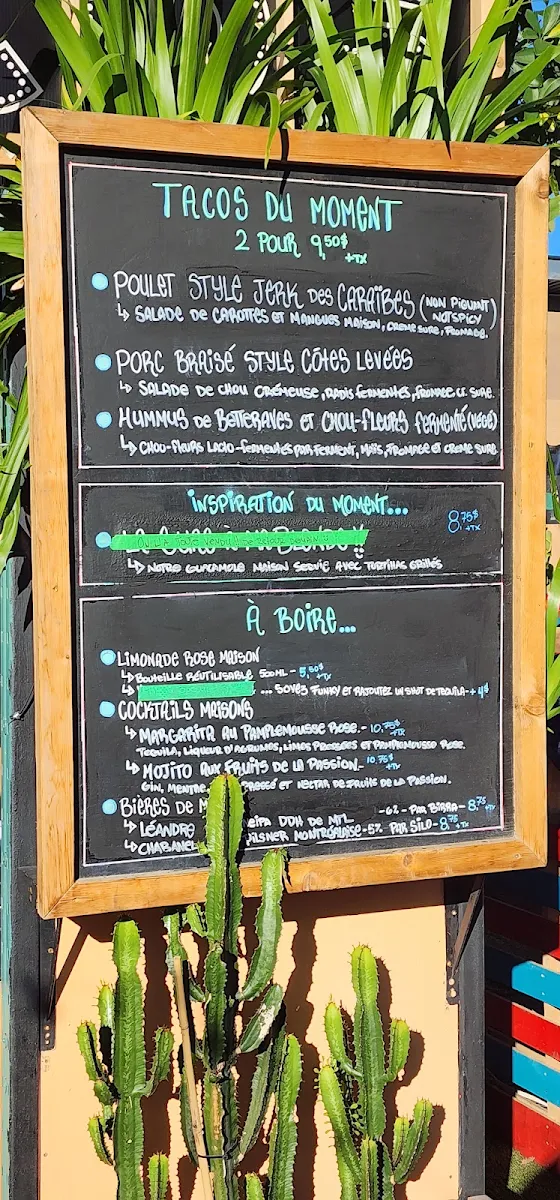 TACOS DU MOMENT
2 POUR 9,50$ +TX
POULET STYLE JERK DES CARAÏBES (NON PIQUANT) NOT SPICY
↳ SALADE DE CAROTTES ET MANGUES MAISON, CREME SURE, FROMAGE.
PORC BRAISÉ STYLE CÔTES LEVÉES
↳ SALADE DE CHOU CRÉMEUSE, RADIS FERMENTÉS, FROMAGE, Cr. SURE.
HUMMUS DE BETTERAVES ET CHOU-FLEURS FERMENTÉ (VÉGÉ)
↳ CHOU-FLEURS LACTO-FERMENTÉS PAR FERMENT, MAÏS, FROMAGE ET CREME SURE.
INSPIRATION DU MOMENT...
8,75$ +TX
ON L'A TOUS VENDU!! DE RETOUR DEMAIN
↳ NOTRE GUACAMOLE MAISON SERVIE AVEC TORTILLAS GRILLÉS
À BOIRE...
LIMONADE ROSE MAISON
↳ BOUTEILLE RÉUTILISABLE 500ML - 5,50$ +TX
↳ ... SOYEZ FUNKY ET RAJOUTEZ UN SHOT DE TEQUILA - +4$
COCKTAILS MAISONS
↳ MARGARITA AU PAMPLEMOUSSE ROSE. - 10,75$ +TX
TEQUILA, LIQUEUR D'AGRUMES, LIMES PRESSÉES ET PAMPLEMOUSSE ROSE.
↳ MOJITO AUX FRUITS DE LA PASSION. - 10,75$ +TX
GIN, MENTHE, PRESSÉ ET NECTAR DE FRUITS DE LA PASSION.
BIÈRES DE M
↳ LÉANDRE EIPA DDH DE MTL -6% - PAR BIRRA - 8,75 +TX
↳ CHABANEL PILSNER MONTRÉALAISE - 5% PAR SILO - 8,75 +TX